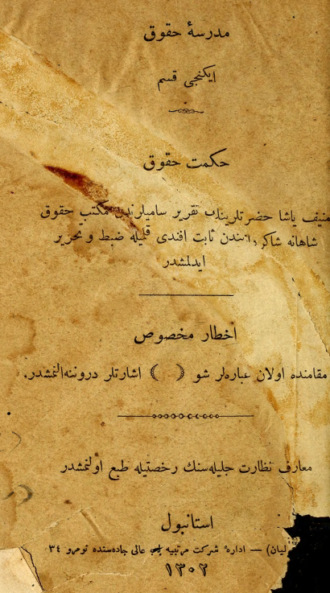 مدرسۀ حقوق
ایكنجی قسم
حكمت حقوق
منیف پاشا حضرتلرینك تقریر سامیلرندن مكتب حقوق
شاهانه شاكردانندن ثابت افندی قلمیله ضبط و تحریر
ایدلمشدر
اخطار مخصوص
مقامنده اولان عباره‌لر شو ( ) اشارتلر دروننه النمشدر.
معارف نظارت جلیله‌سنك رخصتیله طبع اولنمشدر
استانبول
لیان) — ادارۀ شركت مرتبیه باب عالی جاده‌سنده نومرو ٣٤
١٣٠٢